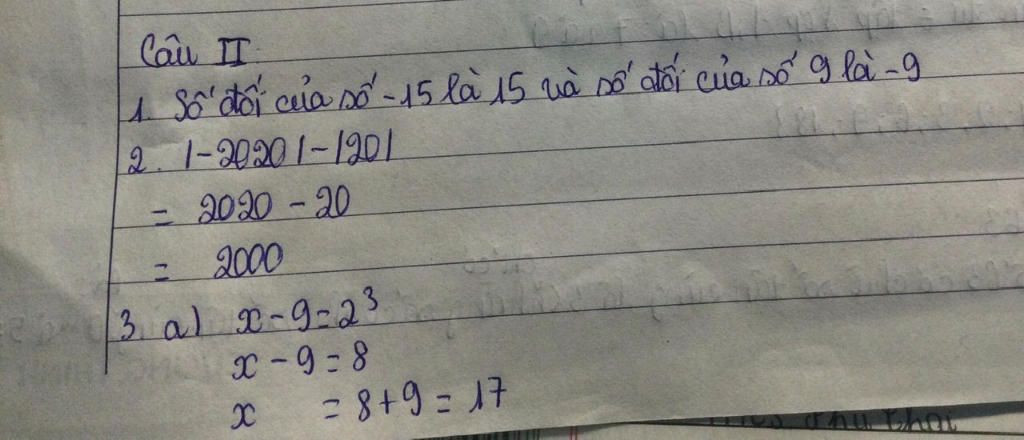 Câu II
1. Số đối của số -15 là 15 và số đối của số 9 là -9
2. |-2020|-|20|
= 2020 - 20
= 2000
3. a) x - 9 = 2³
x - 9 = 8
x = 8 + 9 = 17